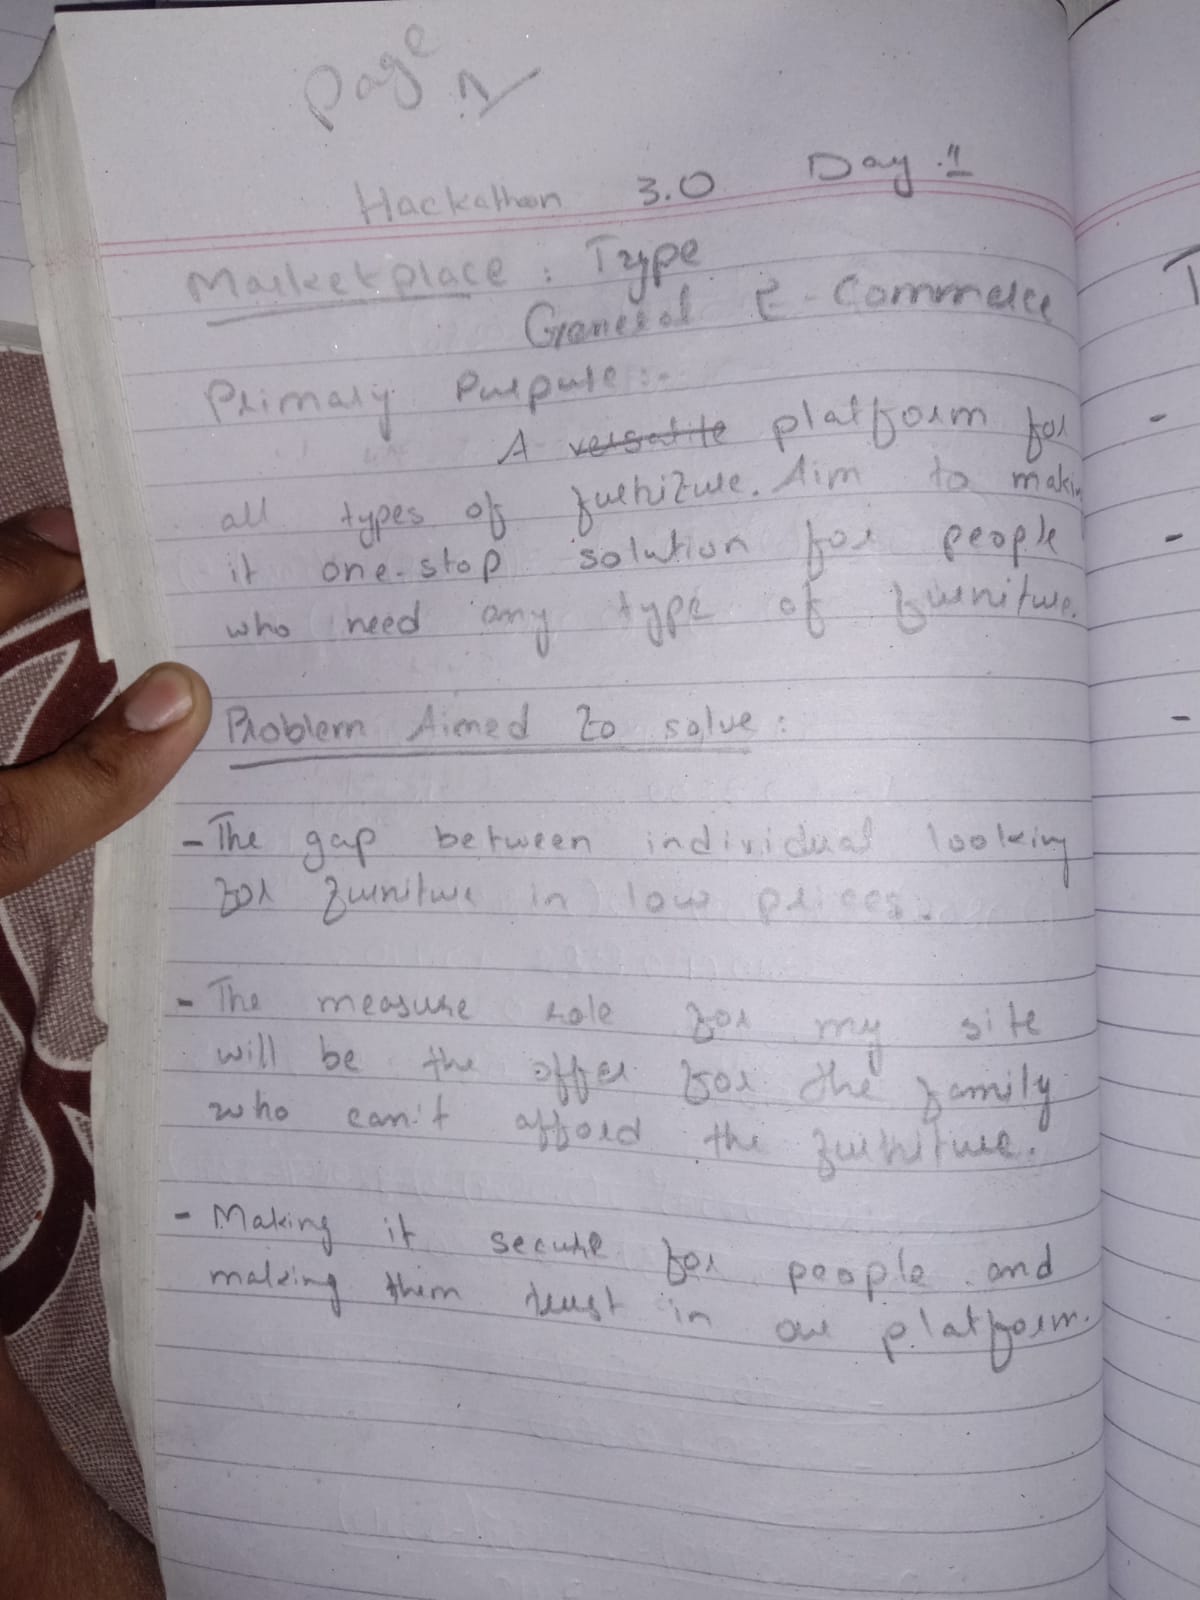 Page 1
Hackathon 3.0 Day 1
Marketplace : Type
General E-Commerce
Primary Purpute :-
A versatite platform for
all types of furniture. Aim to makin
it one-stop solution for people
who need any type of furniture.
Problem Aimed to solve :
- The gap between individual looking
for furniture in low prices.
- The measure role for my site
will be the offer for the family
who can't afford the furniture.
- Making it secure for people and
making them trust in our platform.
T
-
-
-